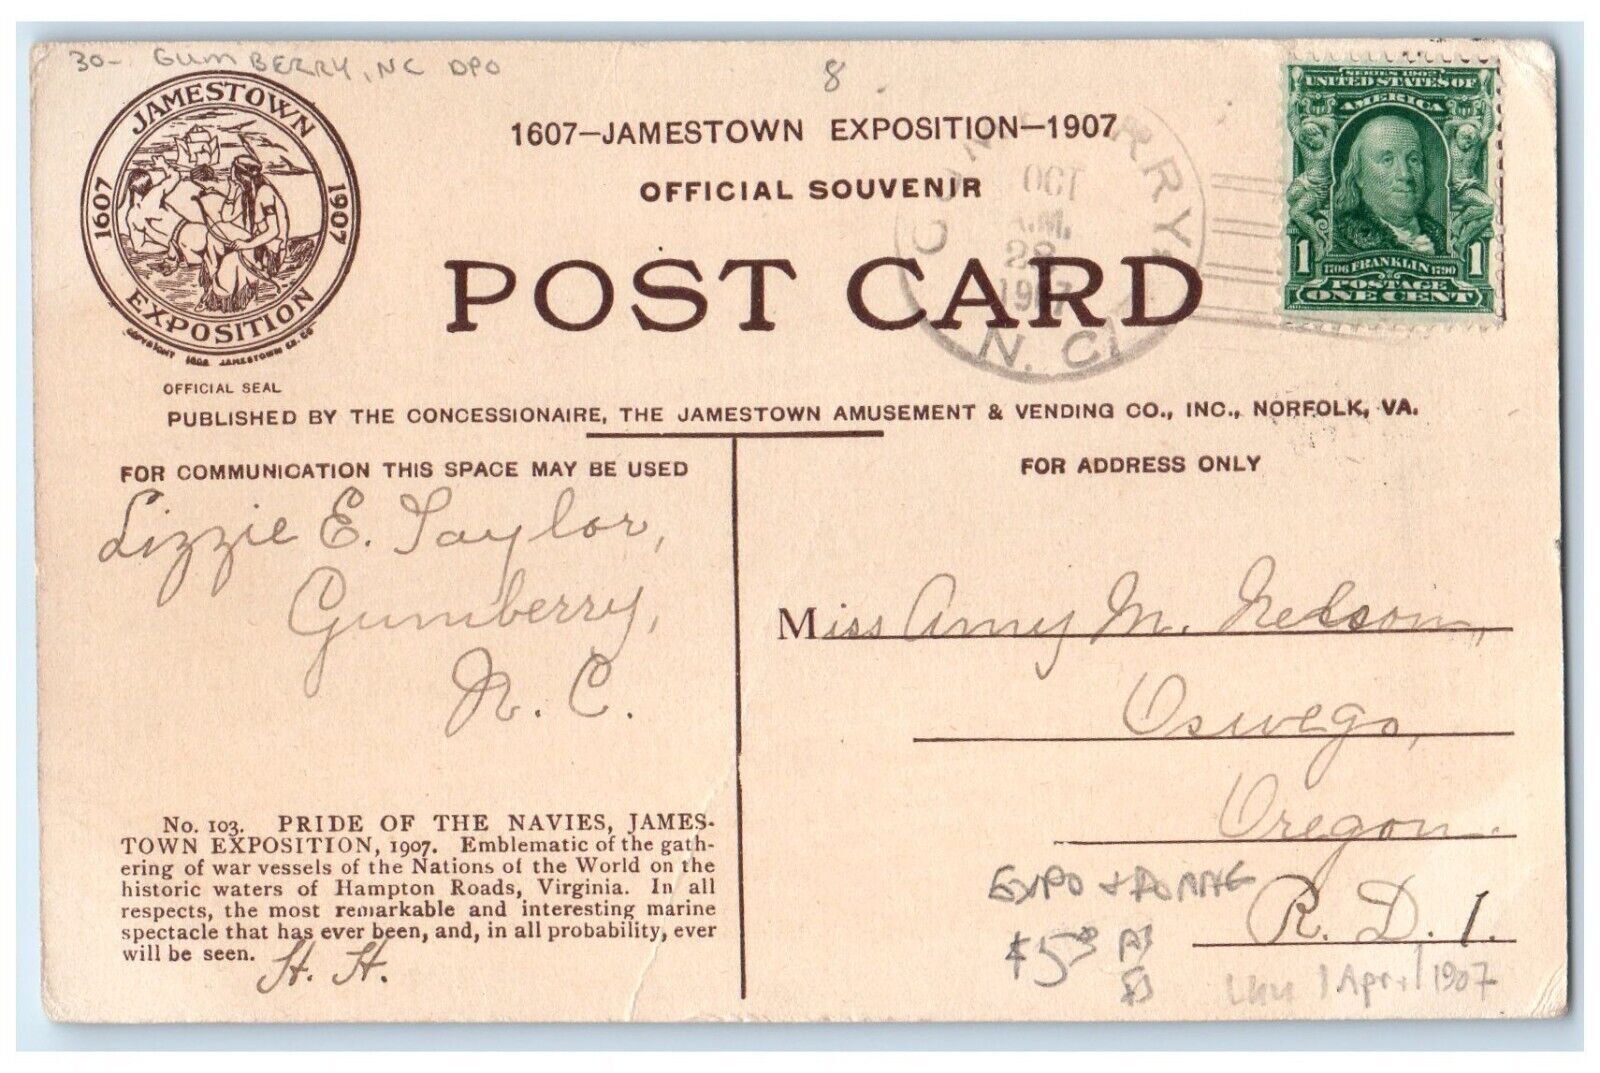 30- GUMBERRY, NC DPO
8
JAMESTOWN
1607 1907
EXPOSITION
COPYRIGHT JAMESTOWN EX. CO.
OFFICIAL SEAL
1607—JAMESTOWN EXPOSITION—1907
OFFICIAL SOUVENIR
POST CARD
OCT
A.M.
28
1907
N. C.
SERIES 1902
UNITED STATES OF
AMERICA
1 1706 FRANKLIN 1790 1
POSTAGE
ONE CENT
PUBLISHED BY THE CONCESSIONAIRE, THE JAMESTOWN AMUSEMENT & VENDING CO., INC., NORFOLK, VA.
FOR COMMUNICATION THIS SPACE MAY BE USED
Lizzie E. Taylor,
Gumberry,
N. C.
No. 103. PRIDE OF THE NAVIES, JAMES-
TOWN EXPOSITION, 1907. Emblematic of the gath-
ering of war vessels of the Nations of the World on the
historic waters of Hampton Roads, Virginia. In all
respects, the most remarkable and interesting marine
spectacle that has ever been, and, in all probability, ever
will be seen.
H. H.
FOR ADDRESS ONLY
Miss Amy M. Nelson,
Oswego,
Oregon.
R. D. 1.
EXPO +
$5
1 April 1907